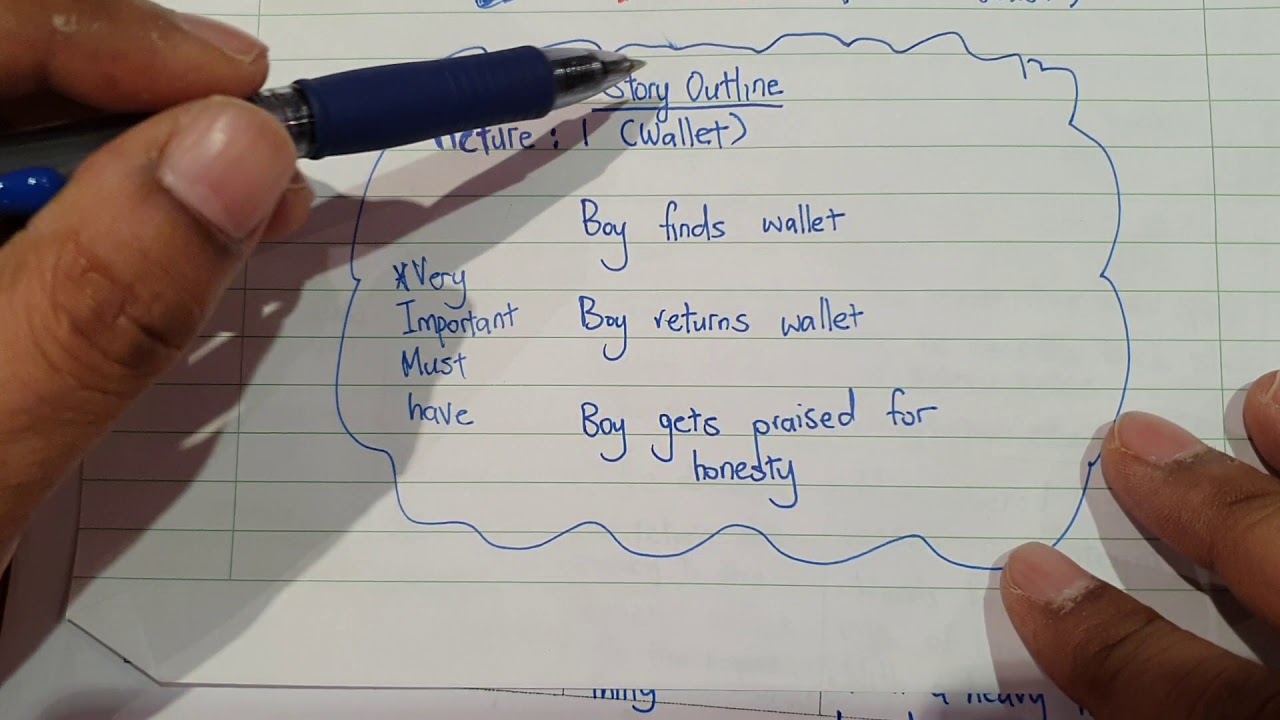 Story Outline
Picture : 1 (Wallet)
Boy finds wallet
*Very
Important
Must
have
Boy returns wallet
Boy gets praised for
honesty
heavy